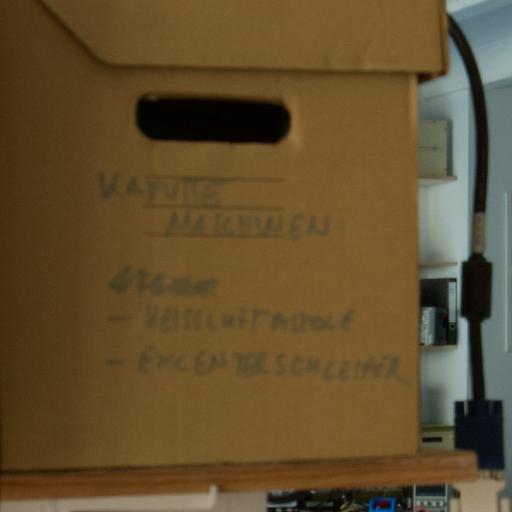 KAPUTTE
MASCHINEN:
- HEISSLUFTPISTOLE
- EXCENTERSCHLEIFER